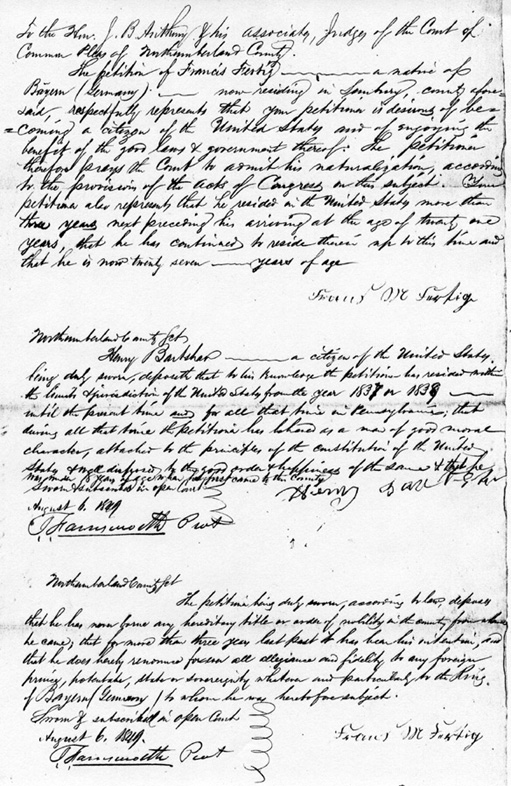 To the Hon. J. B. Anthony & his Associates, Judges of the Court of
Common Pleas of Northumberland County.
The petition of Francis Fertig a native of
Bayern (Germany) now residing in Sunbury, county afore-
said, respectfully represents that your petitioner is desirous of be-
=coming a citizen of the United States and of enjoying the
benefit of the good laws & government thereof: The petitioner
therefore prays the Court to admit his naturalization, according
to the provisions of the Acts of Congress on this subject. Your
petitioner also represents that he resided in the United States more than
three years next preceding his arriving at the age of twenty one
years, that he has continued to reside therein up to this time and
that he is now twenty seven years of age
Frans M Fertig
Northumberland County Sct
Henry a citizen of the United States,
being duly sworn, deposeth that to his knowledge the petitioner has resided within
the limits & jurisdiction of the United States from the year 1837 or 1838
until the present time and for all that time in Pennsylvania; that
during all that time the petitioner has behaved as a man of good moral
character, attached to the principles of the constitution of the United
States & well disposed to the good order & happiness of the same & that he
was under 18 years of age when he first came to the County
Sworn & subscribed in open Court
Henry
August 6. 1849
Farnsworth Prot
Northumberland County Sct
The petitioner being duly sworn, according to law, deposes
that he has now borne any hereditary title or order of nobility in the country from whence
he came; that for more than three years last past it has been his intention, and
that he does hereby renounce forever all allegiance and fidelity to any foreign
prince, potentate, state or sovereignty whatever and particularly to the King
of Bayern (Germany) to whom he was heretofore subject.
Sworn & subscribed in open Court
August 6. 1849.
Frans M Fertig
Farnsworth Prot